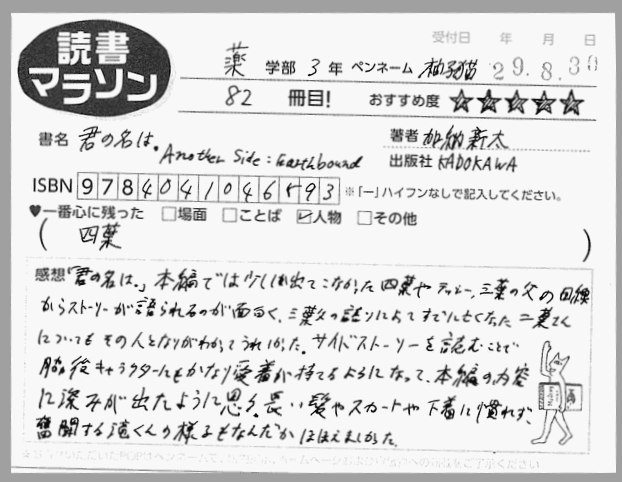 読書
マラソン
受付日 年 月 日
薬 学部 3 年 ペンネーム 柚子猫 29.8.30
82 冊目! おすすめ度 ★★★★★
書名 君の名は。Another Side:Earthbound
著者 加納新太
出版社 KADOKAWA
ISBN 9784041046593 ※「ー」ハイフンなしで記入してください。
♥一番心に残った □場面 □ことば ☑人物 □その他
( 四葉 )
感想 「君の名は。」本編では少ししか出てこなかった四葉やテッシー、三葉の父の目線
からストーリーが語られるのが面白く、三葉父の語りによってすでに亡くなった二葉さん
についてもその人となりがわかってうれしかった。サイドストーリーを読むことで
脇役キャラクターにもかなり愛着が持てるようになって、本編の内容
に深みが出たように思う。長い髪やスカートや下着に慣れず、
奮闘する瀧くんの様子もなんだかほほえましかった。